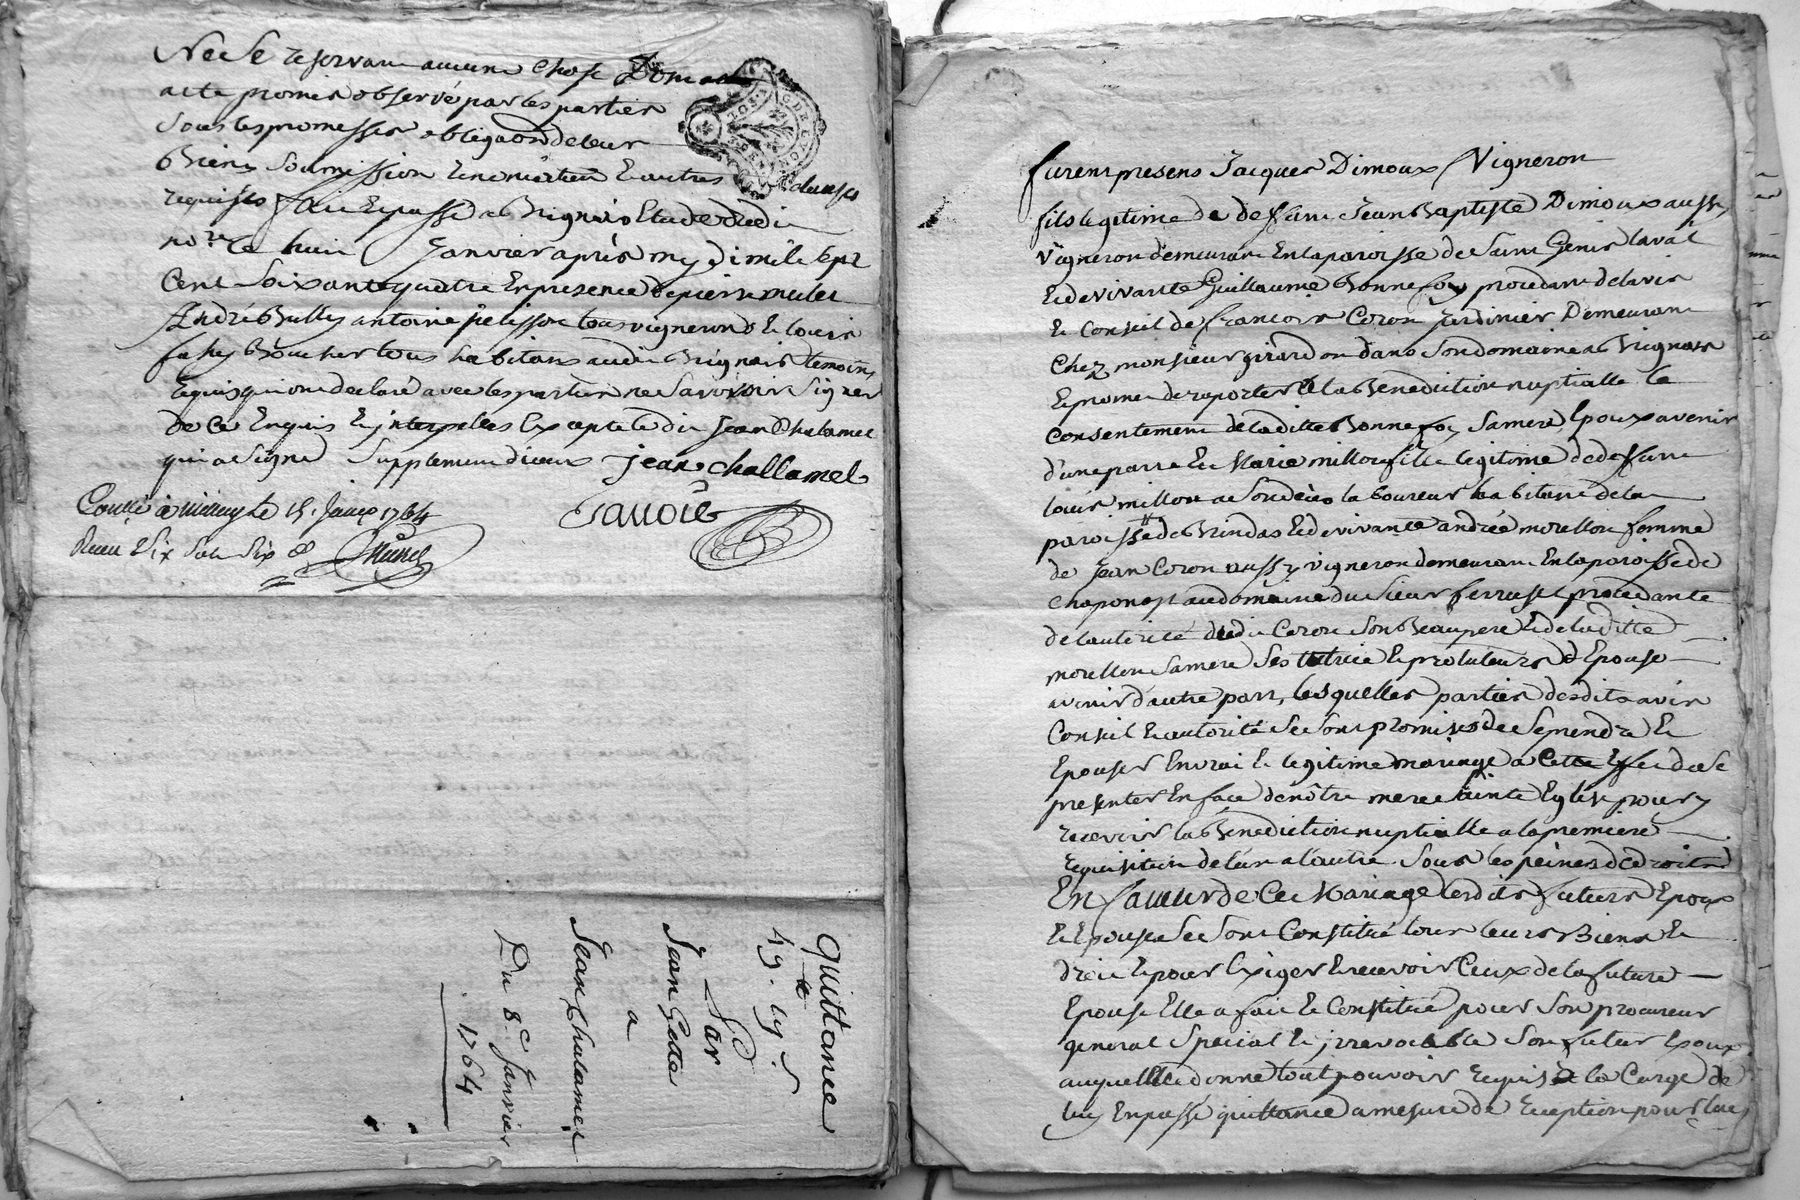 Ne Se reservant aucune Chose Dont
acte promis observé par les parties
Sous les promesses obligaõn de leurs
Biens Soumission renonciation & autres Clauses
requises fait & passé a Brignais Etude dudit
no.re le huit Janvier après mydi mil Sept
Cent Soixante quatre En presence de pierre mulet
André Bully antoine pelisson tous vignerons & Louis
Bouchers tous habitans audit Brignais temoins
requis qui ont declaré avec les parties ne Savovoir Signer
de Ce Enquis & interpellés Excepté ledit Jean Chalamel
qui a Signé Supplement d'iceux Jean challamel
Controllé à le 15. Janv. 1764
Recu Six Sols Six d
G. DE LYON
Quittance
de
49. lt. 9. s
Par
Jean Gotta
a
Jean Chalamel
Du 8.e Janvier
1764
furent presens Jacques Dimoux Vigneron
fils legitime de deffunt Jean Baptiste Dimoux aussy
Vigneron demeurant En la paroisse de Saint Genis Laval
& de vivante Guillaume Bonnefoy procedant de l'avis
& Conseil de francois Coron Jardinier Demeurant
Chez monsieur girardon dans Son domaine a Brignais
& promet de rapporter a la Benediction nuptialle le
Consentement de la ditte Bonnefoy Sa mere, Epoux avenir
d'une part & Marie millon fille legitime de deffunt
Louis millon a Son deces laboureur habitant de la
paroisse de Brindas & de vivante andrée morellon femme
de Jean Coron aussy vigneron demeurant En la paroisse de
Chaponost au domaine du Sieur ferrussel procedante
de l'autorité dudit Coron Son Beaupere & de la ditte
morellon Sa mere Ses tutrice & protuteurs Epouse
avenir d'autre part, lesquelles parties desdits avis
Conseil & autorité Se Sont promises de Se prendre &
Epouser En vrai & legitime mariage a Cette Effet de Se
presenter En face de nôtre mere Sainte Eglise pour y
recevoir la Benediction nuptialle a la premiere
requisition de l'un a l'autre. Sous les peines de droits
En faveur de Ce Mariage lesdits futurs Epoux
& Epouse Se Sont Constitué tous leurs Biens &
droit & pour Exiger & recevoir Ceux de la future
Epouse Elle a fait & Constitué pour Son procureur
general Special & irrevocable Son futur Epoux
auquel Elle donne tout pouvoir requis a la Carge de
luy En passé quittance a mesure de reception pour luy